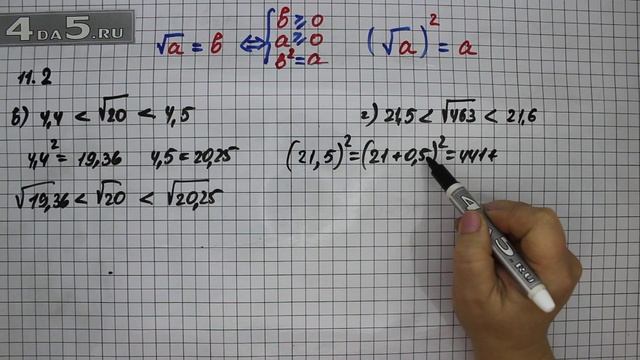 4DA5.RU
√a = b ⇔ { b ⩾ 0
a ⩾ 0
b² = a
(√a)² = a
11.2
в) 4,4 < √20 < 4,5
4,4² = 19,36 4,5 = 20,25
√19,36 < √20 < √20,25
г) 21,5 < √463 < 21,6
(21,5)² = (21 + 0,5)² = 441 +
4DA5.RU